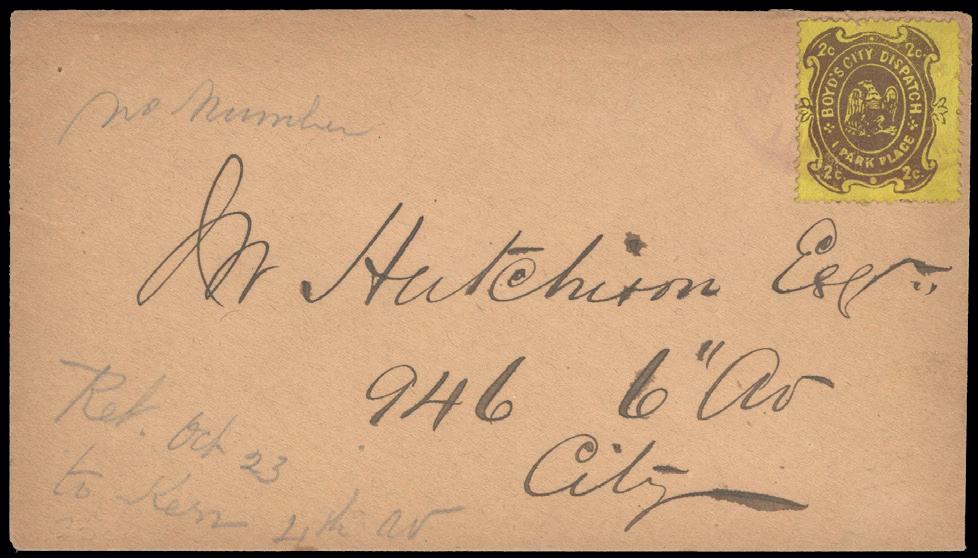 2c. 2c.
BOYD'S CITY DISPATCH
1 PARK PLACE
2c. 2c.
no number
W Hutchison Esqr
946 6" Av
City
Ret. Oct 23
to Kerr 4th av